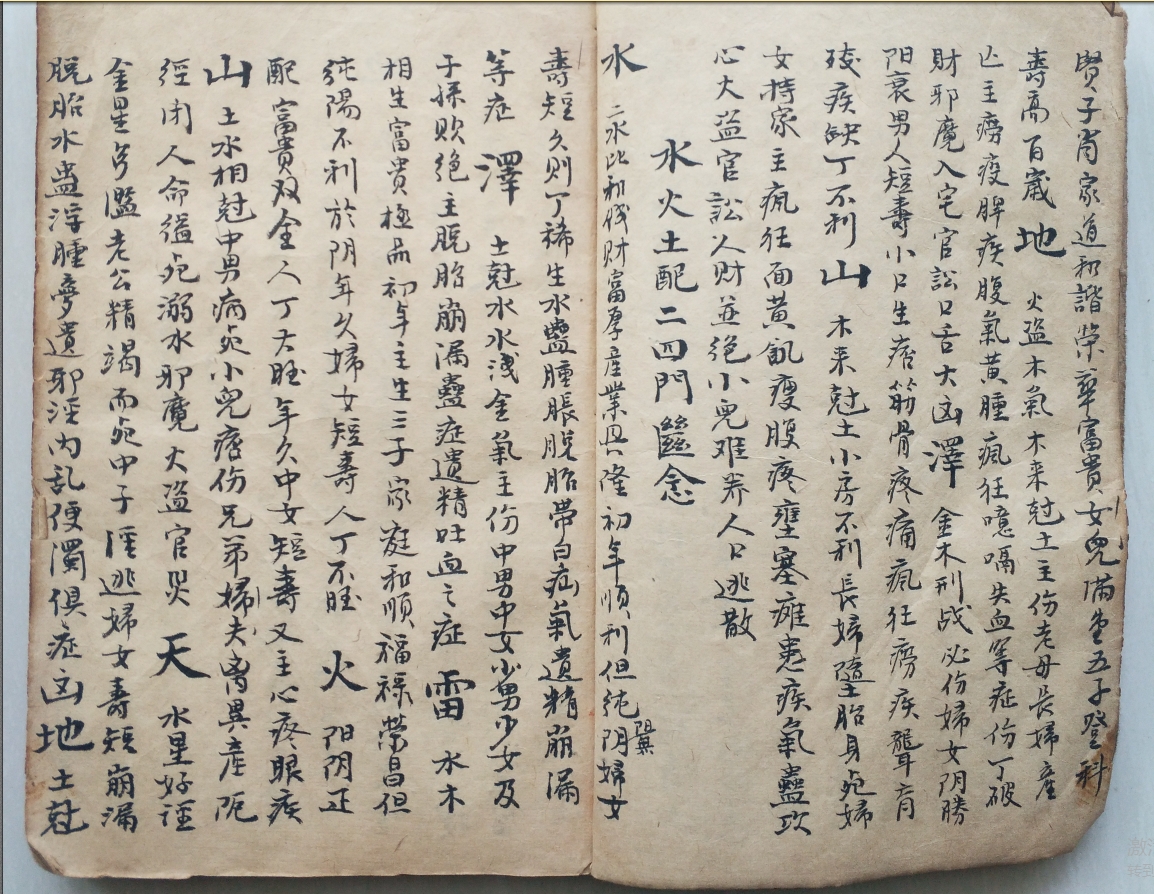 賢子肖家道和諧荣華富貴女児滿堂五子登科
壽高百歲 地 火盗木氣木来尅土主伤老母長婦産
亡主癆疫脾疾腹氣黄腫瘋狂噫嗝失血等症伤丁破
財邪魔入宅官訟口舌大凶 澤 金木刑战必伤婦女阴勝
阳衰男人短壽小口生瘡筋骨疼痛瘋狂癆疾聾育
残疾缺丁不利 山 木来尅土小房不利長婦墮胎身死婦
女持家主瘋狂面黄飢瘦腹疼壅塞瘫患疾氣蠱攻
心大盗官訟人财並絶小児难养人口逃散
水火土配二四門 念
水 二水比和 财富厚産業兴隆初年順利但纯阴婦女
陽無
壽短久则丁稀生水蠱腫脹脱胎带白疝氣遺精崩漏
等症 澤 土尅水水浅金氣主伤中男中女少男少女及
子孫败絶主脱胎崩漏蠱症遺精吐血之症 雷 水木
相生富貴極品初年主生三子家庭和順福禄荣昌但
纯陽不利於阴年久婦女短壽人丁不旺 火 阳阴正
配富貴双全人丁大旺年久中女短壽又主心疼眼疾
山 土水相尅中男病死小児瘡伤兄弟婦夫离異産阨
經闭人命缢死溺水邪魔大盗官災 天 水里好淫
金星多滥老公精竭而死中子淫逃婦女壽短崩漏
脱胎水蛊浮腫夢遺邪淫内乱便濁俱症凶 地 土尅